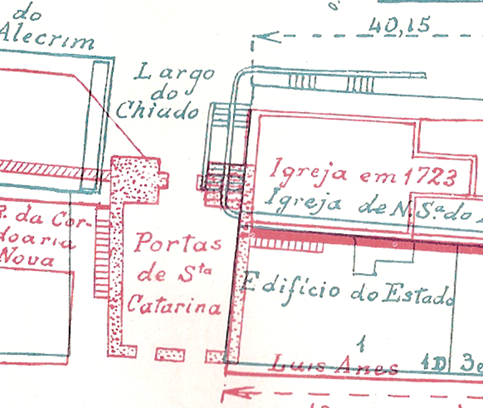 do
Alecrim
40,15
Largo
do
Chiado
Igreja em 1723
Igreja de N. Sª do
R. da Cor-
doaria
Nova
Portas
de Sta
Catarina
Edifício do Estado
1
1D
3
Luis Anes